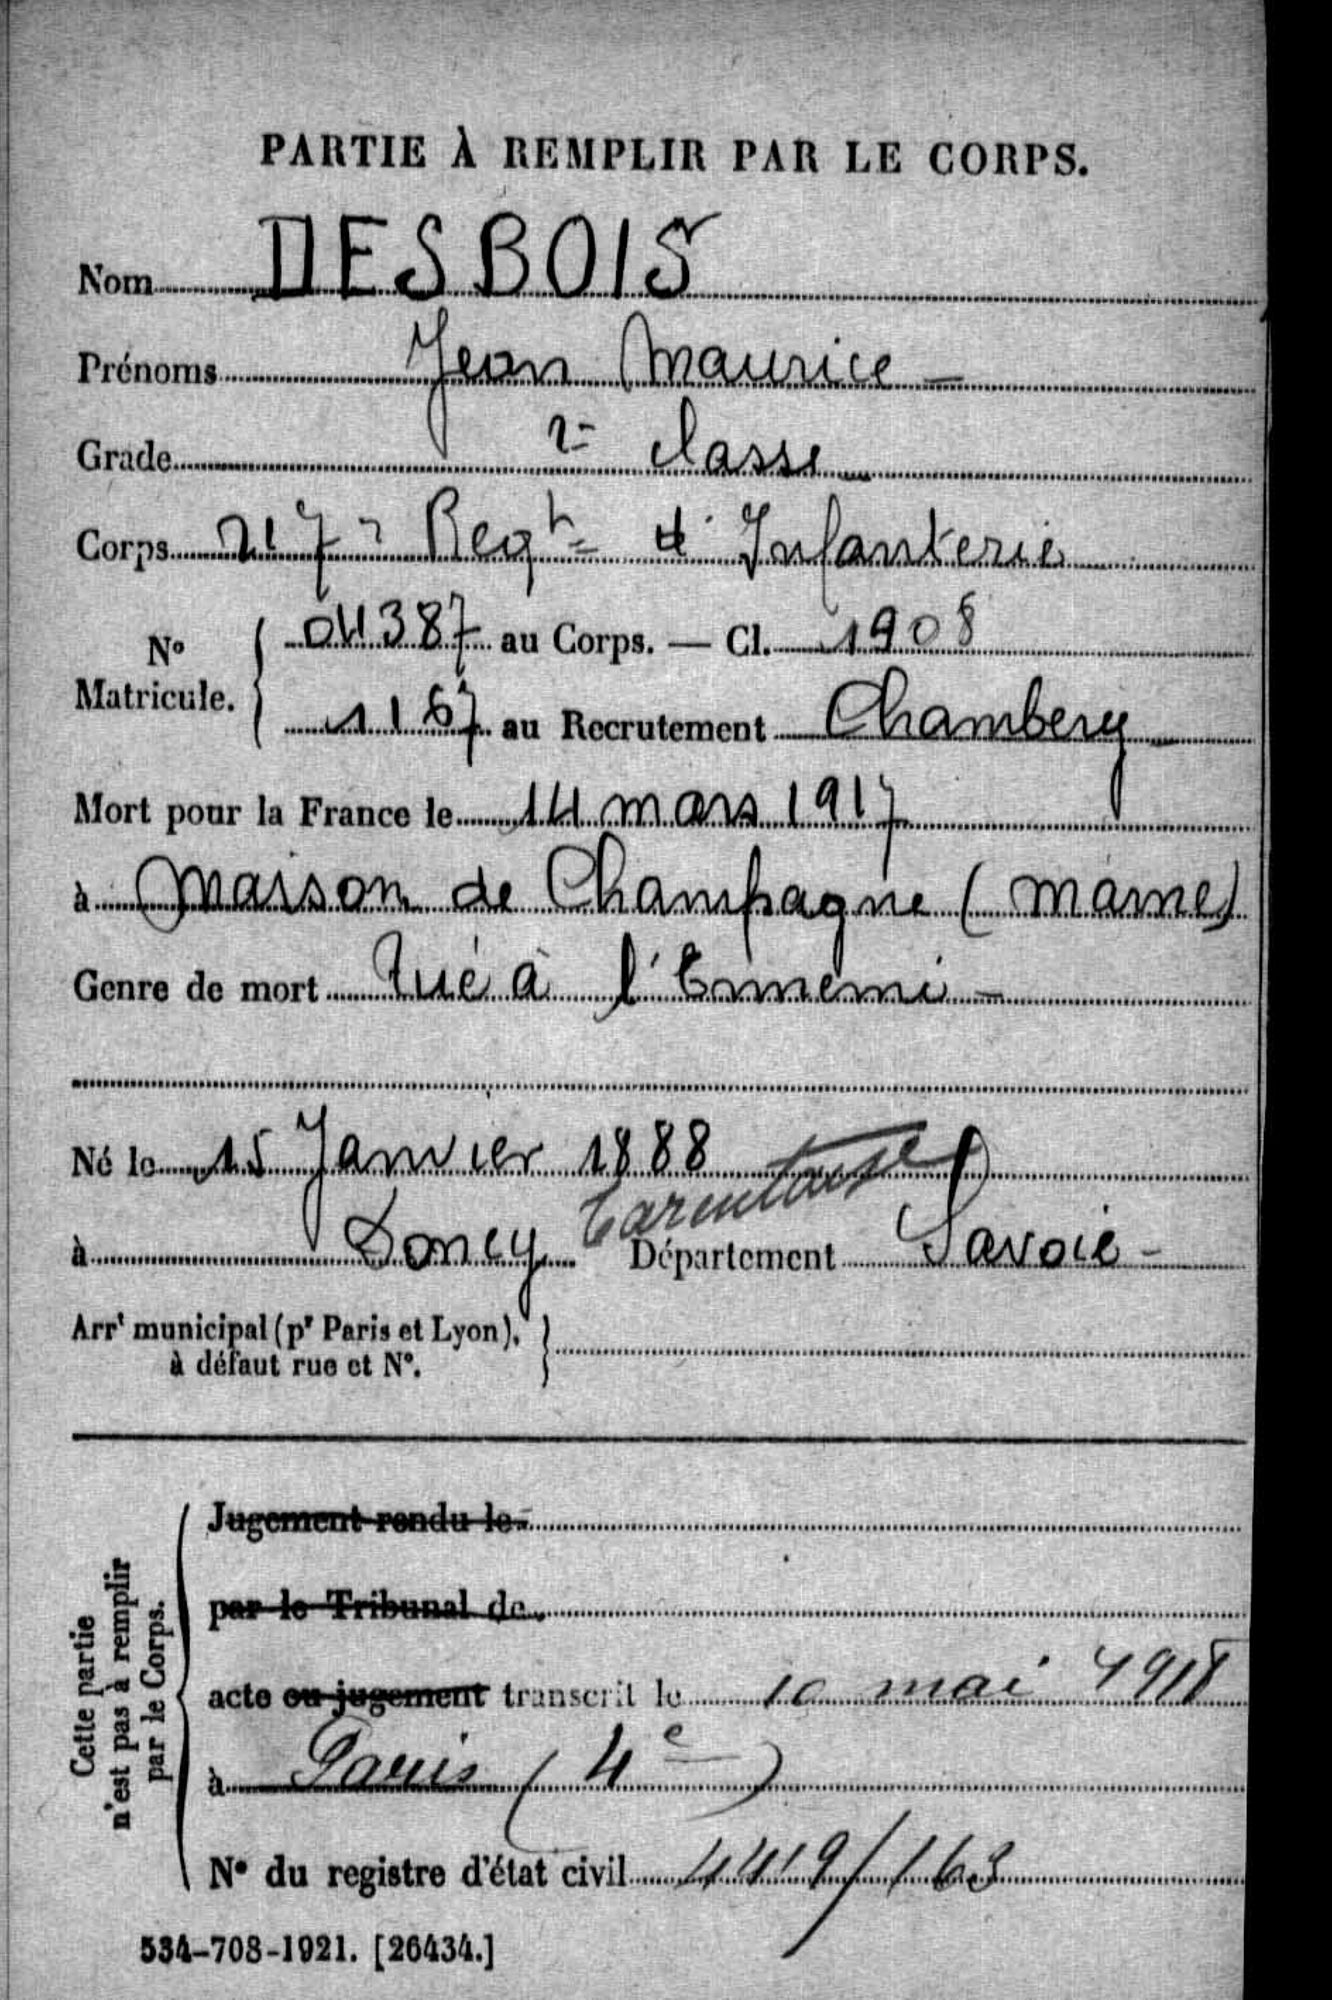 PARTIE À REMPLIR PAR LE CORPS.
Nom DESBOIS
Prénoms Jean Maurice -
Grade 2e classe
Corps 217e Regt d'Infanterie
No Matricule. { 04387 au Corps. — Cl. 1908
1167 au Recrutement Chambery
Mort pour la France le 14 mars 1917
à Maison de Champagne (Marne)
Genre de mort Tué à l'Ennemi -
Né le 15 Janvier 1888
Tarentaise
à Doucy Département Savoie -
Arrt municipal (pr Paris et Lyon),
à défaut rue et No. }
Cette partie
n'est pas à remplir
par le Corps.
Jugement rendu le
par le Tribunal de
acte ou jugement transcrit le 10 mai 1918
à Paris (4e)
No du registre d'état civil 4419/163
534-708-1921. [26434.]